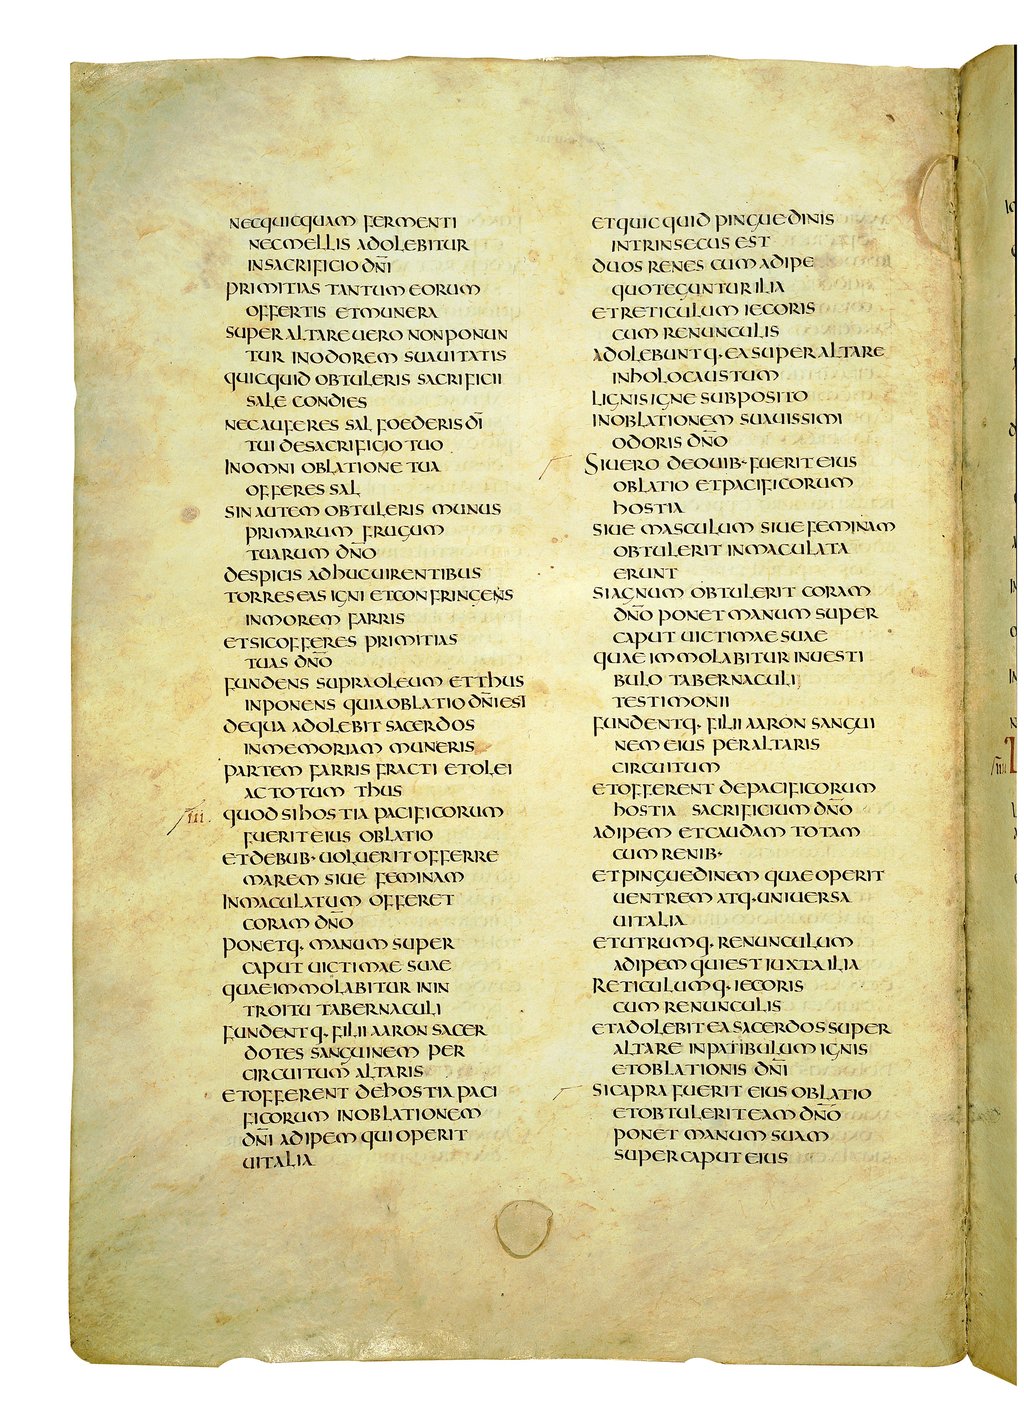 NECQUICQUAM FERMENTI
NECMELLIS ADOLEBITUR
INSACRIFICIO DN̄I
PRIMITIAS TANTUM EORUM
OFFERTIS ETMUNERA
SUPER ALTARE UERO NON PONUN
TUR IN ODOREM SUAUITATIS
QUICQUID OBTULERIS SACRIFICII
SALE CONDIES
NEC AUFERES SAL FOEDERIS DĪ
TUI DESACRIFICIO TUO
IN OMNI OBLATIONE TUA
OFFERES SAL
SIN AUTEM OBTULERIS MUNUS
PRIMARUM FRUGUM
TUARUM DN̄O
DESPICIS ADHUC UIRENTIBUS
TORRES EAS IGNI ET CONFRINGENS
INMOREM FARRIS
ETSIC OFFERES PRIMITIAS
TUAS DN̄O
FUNDENS SUPRA OLEUM ET THUS
INPONENS QUIA OBLATIO DN̄I EST
DE QUA ADOLEBIT SACERDOS
INMEMORIAM MUNERIS
PARTEM FARRIS FRACTI ET OLEI
AC TOTUM THUS
III. QUOD SI HOSTIA PACIFICORUM
FUERIT EIUS OBLATIO
ET DE BUB· UOLUERIT OFFERRE
MAREM SIUE FEMINAM
INMACULATUM OFFERET
CORAM DN̄O
PONETQ· MANUM SUPER
CAPUT UICTIMAE SUAE
QUAE IMMOLABITUR IN IN
TROITU TABERNACULI
FUNDENTQ· FILII AARON SACER
DOTES SANGUINEM PER
CIRCUITUM ALTARIS
ET OFFERENT DE HOSTIA PACI
FICORUM IN OBLATIONEM
DN̄I ADIPEM QUI OPERIT
UITALIA
ET QUICQUID PINGUEDINIS
INTRINSECUS EST
DUOS RENES CUM ADIPE
QUO TEGUNTUR ILIA
ET RETICULUM IECORIS
CUM RENUNCULIS
ADOLEBUNTQ· EA SUPER ALTARE
IN HOLOCAUSTUM
LIGNIS IGNE SUBPOSITO
IN OBLATIONEM SUAUISSIMI
ODORIS DN̄O
SI UERO DE OUIB· FUERIT EIUS
OBLATIO ET PACIFICORUM
HOSTIA
SIUE MASCULUM SIUE FEMINAM
OBTULERIT INMACULATA
ERUNT
SI AGNUM OBTULERIT CORAM
DN̄O PONET MANUM SUPER
CAPUT UICTIMAE SUAE
QUAE IMMOLABITUR IN UESTI
BULO TABERNACULI
TESTIMONII
FUNDENTQ· FILII AARON SANGUI
NEM EIUS PER ALTARIS
CIRCUITUM
ET OFFERENT DE PACIFICORUM
HOSTIA SACRIFICIUM DN̄O
ADIPEM ET CAUDAM TOTAM
CUM RENIB·
ET PINGUEDINEM QUAE OPERIT
UENTREM ATQ· UNIUERSA
UITALIA
ET UTRUMQ· RENUNCULUM
ADIPEM QUI EST IUXTA ILIA
RETICULUMQ· IECORIS
CUM RENUNCULIS
ET ADOLEBIT EA SACERDOS SUPER
ALTARE IN PATIBULUM IGNIS
ET OBLATIONIS DN̄I
SI CAPRA FUERIT EIUS OBLATIO
ET OBTULERIT EAM DN̄O
PONET MANUM SUAM
SUPER CAPUT EIUS